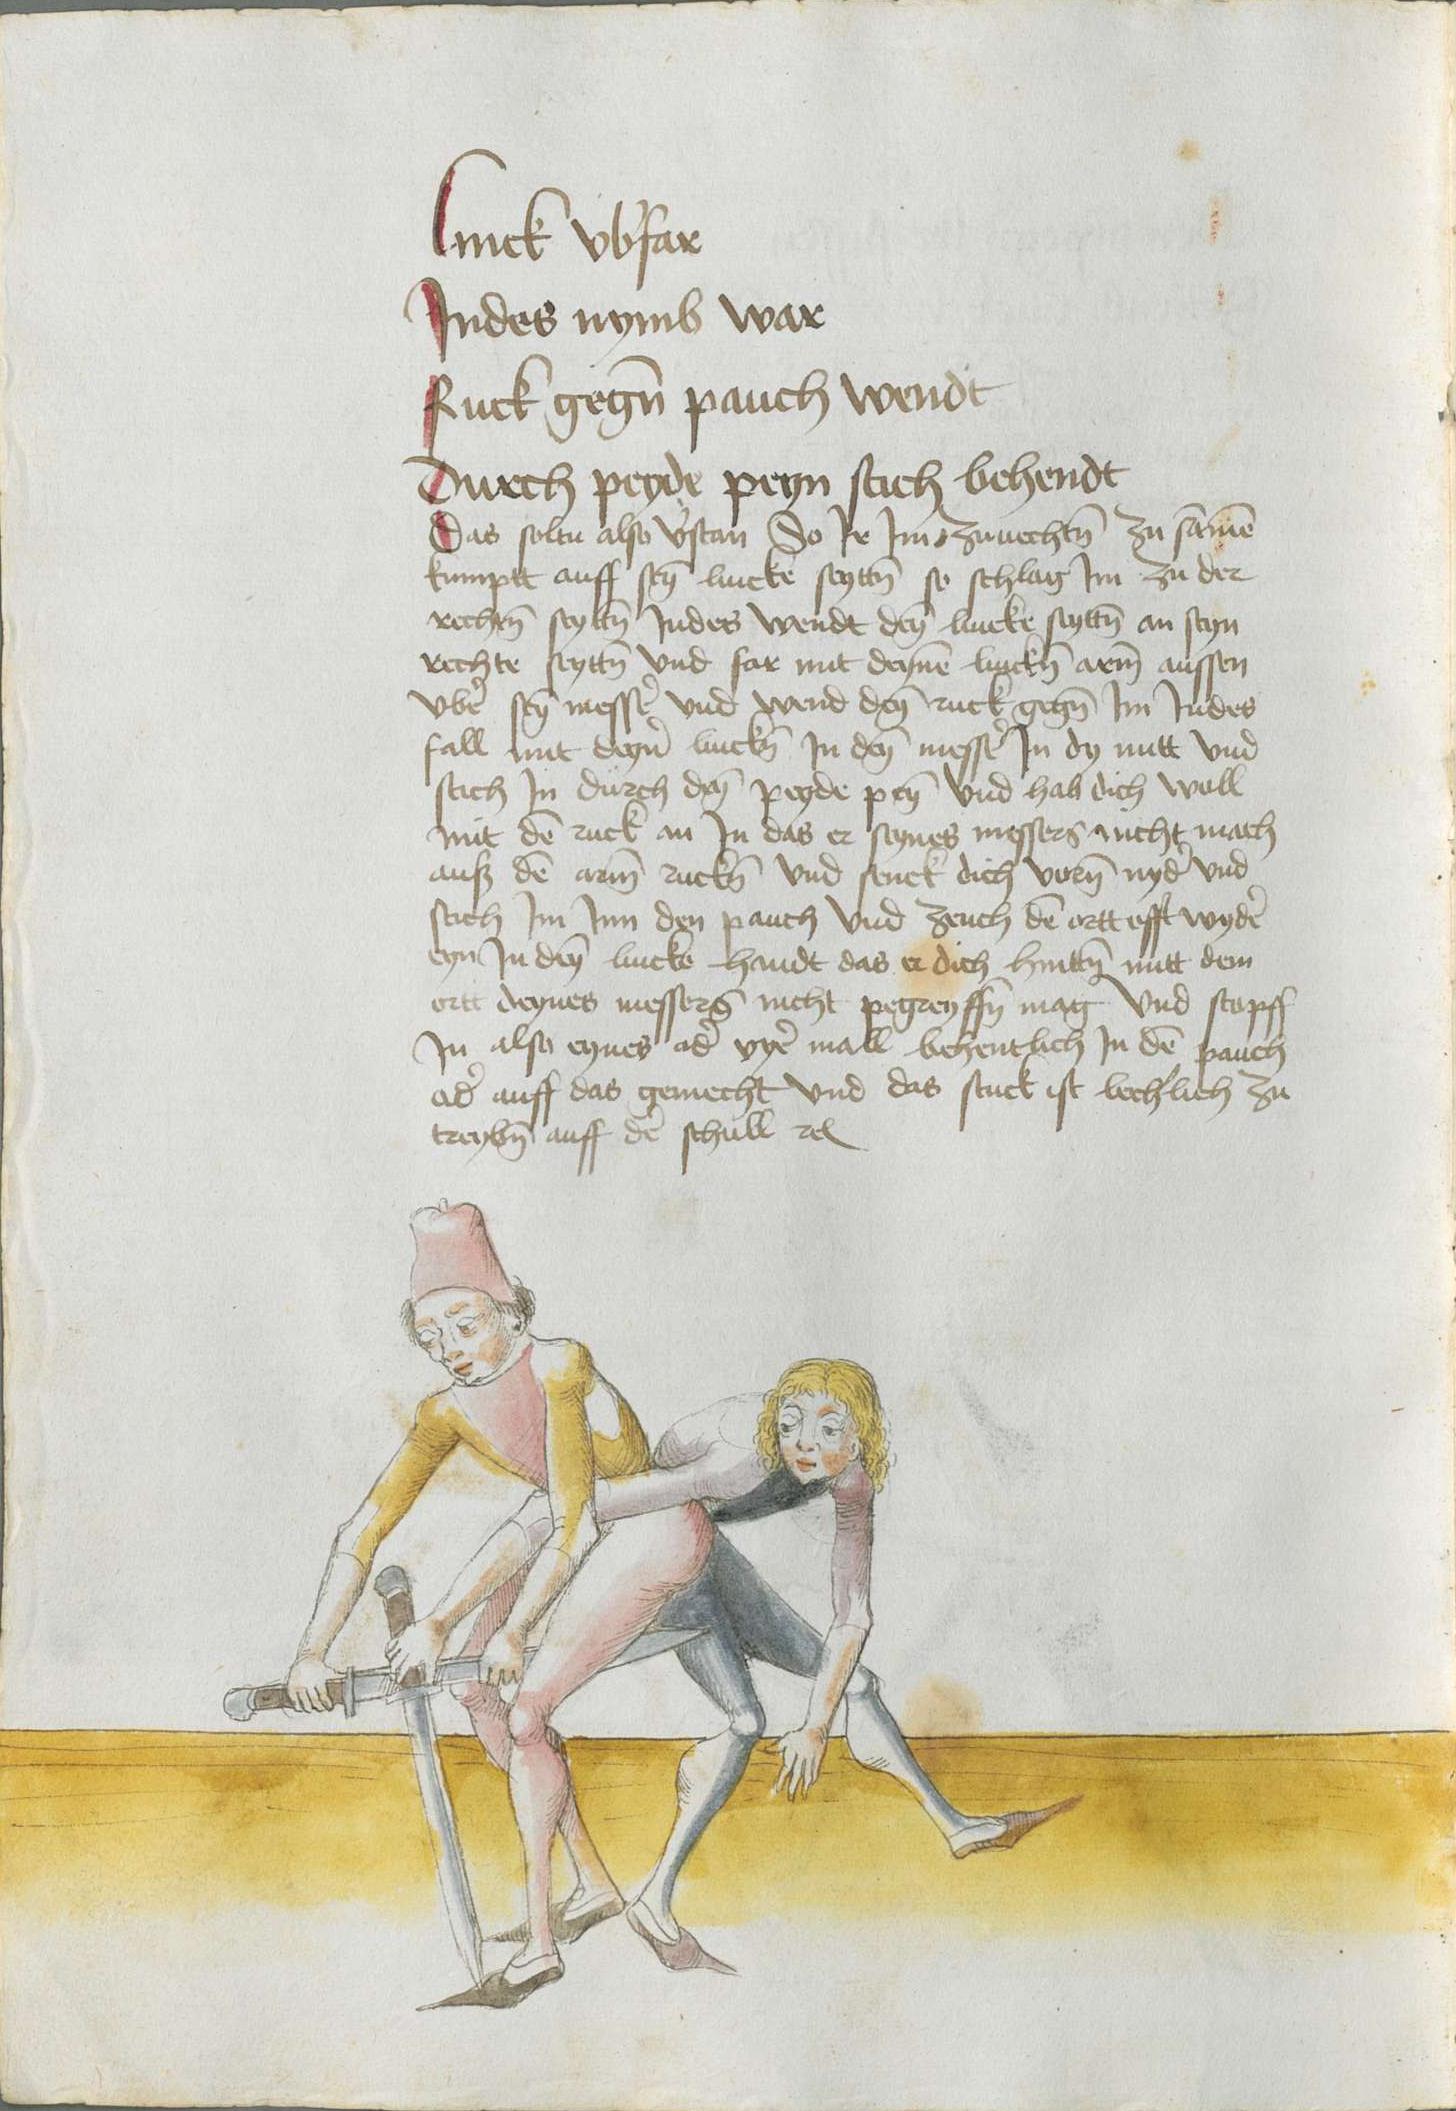 Linck vb̕far
Jndes nymb war
Ruck gegn̄ pauch wendt
Durch peyde peyn stich behendt
Das soltu also v̕stan So Jr Jm zuuechtn̄ zu sāmē
kumptt auff seȳ lincke seyttn̄ so schlag Jm zu der
rechtn̄ seyttn̄ Jndes wendt deȳ lincke seyttn̄ an seyn
rechte seyttn̄ vnd far mit deynē linckn̄ arm̄ aussen
vbe̕ seȳ messe̕ vnd wend deȳ ruck gegn̄ Jm Jndes
fall mit deyn̕ linckn̄ Jn deȳ messe̕ Jn dy mitt vnd
stich Jn durch deȳ peyde peȳ vnd hab dich woll
mit dē ruck an Jn das er seynes messers nicht mach
auß dē arm̄ ruckn̄ vnd senck dich vorn̄ nyd̕ vnd
stich Jm Jnn den pauch vnd zeuch dē ortt offt wyde̕
eyn Jn deȳ lincke handt das er dich hinttn̄ mitt dem
ortt deynes messers nicht pegreyffn̄ mag vnd stopff
Jn also eynes ad̕ vye̕ mall behentlich Jn dē pauch
ad̕ auff das gemecht vnd das stuck ist lech̕lich zu
treybn̄ auff de̕ schull rc